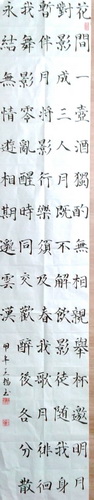 花間一壺酒獨酌無相親舉杯邀明月
對影成三人月既不解飲影徒隨我身
暫伴月將影行樂須及春我歌月徘徊
我舞影零亂醒時同交歡醉後各分散
永結無情遊相期邈雲漢
甲午